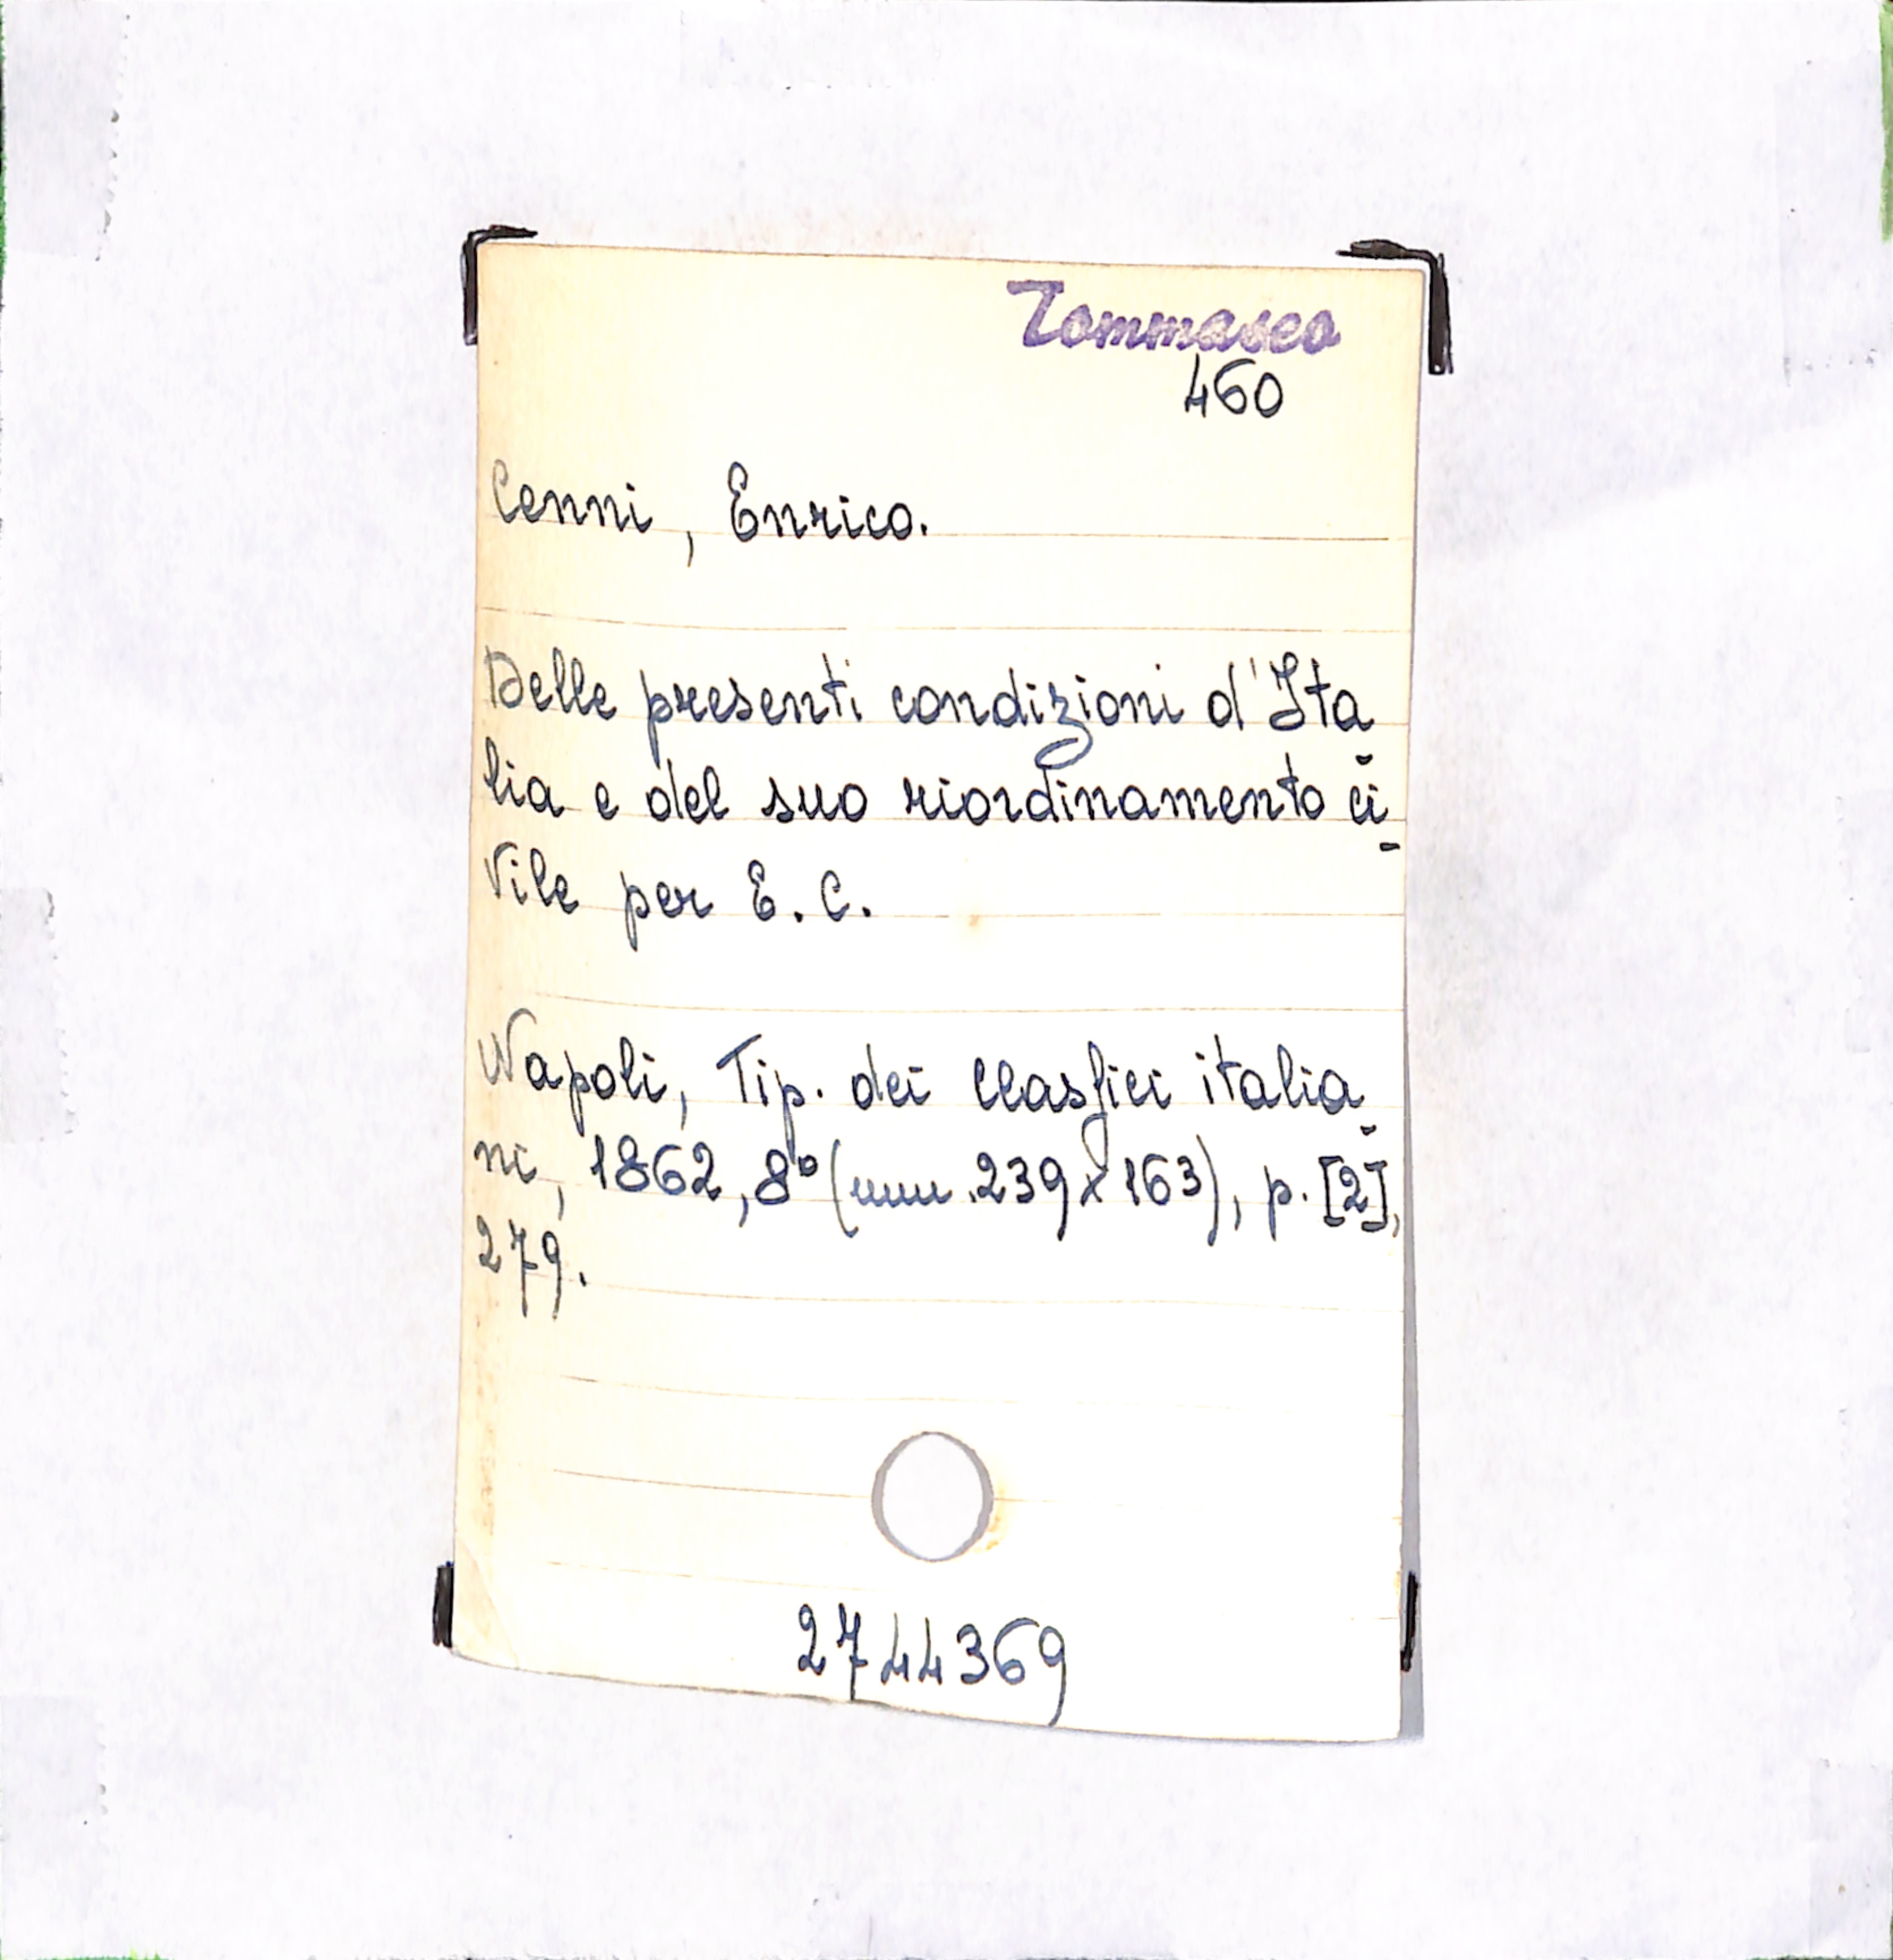 Tommaseo
460
Cenni, Enrico.
Delle presenti condizioni d'Ita-
lia e del suo riordinamento ci-
vile per E. C.
Napoli, Tip. dei Classici italia-
ni, 1862, 8° (mm. 239x163), p. [2],
279.
2744369